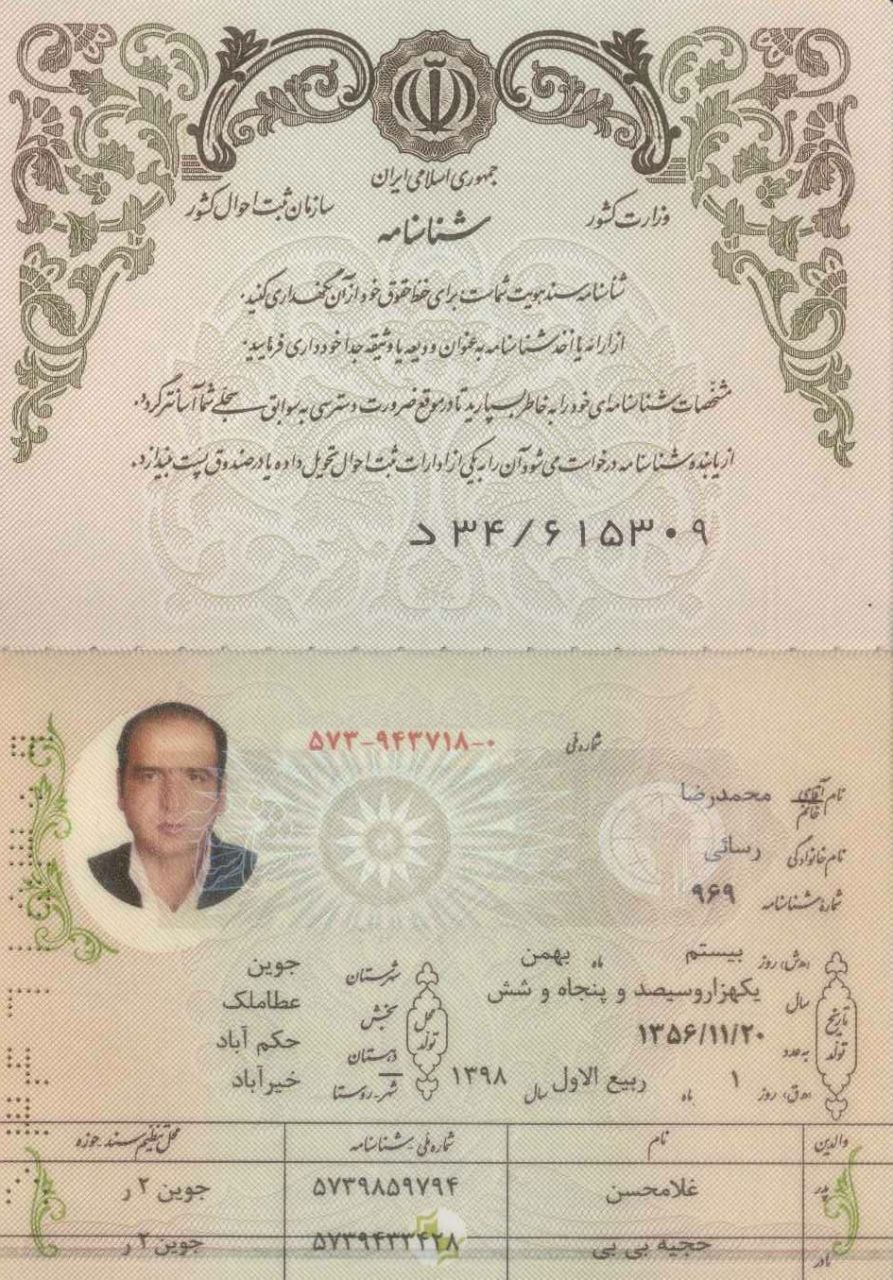 جمهوری اسلامی ایران
وزارت کشور
سازمان ثبت احوال کشور
شناسنامه
شناسنامه سند هویت شماست، برای حفظ حقوق خود از آن نگهداری کنید.
از ارائه یا اخذ شناسنامه به عنوان ودیعه یا وثیقه جدا خودداری فرمایید.
مشخصات شناسنامه‌ای خود را به خاطر بسپارید تا در موقع ضرورت دسترسی به سوابق سجلی شما آسانتر گردد.
از یابنده شناسنامه درخواست می شود آن را به یکی از ادارات ثبت احوال تحویل داده یا در صندوق پست بیندازد.
د ۳۴/۶۱۵۳۰۹
شماره ملی ۵۷۳-۹۴۳۷۱۸-۰
نام آقای خانم محمدرضا
نام خانوادگی رسائی
شماره شناسنامه ۹۶۹
تاریخ تولد
(ه‍.ش) روز بیستم ماه بهمن
سال یکهزاروسیصد و پنجاه و شش
به عدد ۱۳۵۶/۱۱/۲۰
(ه‍.ق) روز ۱ ماه ربیع الاول سال ۱۳۹۸
محل تولد
شهرستان جوین
بخش عطاملک
دهستان حکم آباد
شهر-روستا خیرآباد
والدین نام شماره ملی شناسنامه محل تنظیم سند حوزه
پدر غلامحسن ۵۷۳۹۸۵۹۷۹۴ جوین ۲ ر
مادر حجیه بی بی ۵۷۳۹۴۳۳۴۲۸ جوین ۲ ر